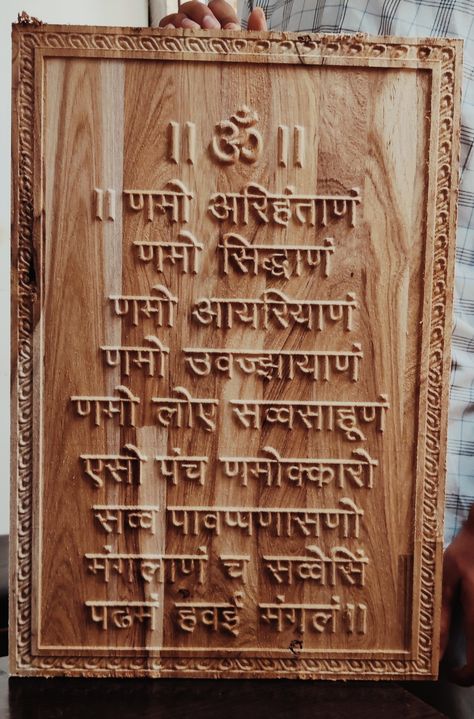 ॥ ॐ ॥
॥ णमो अरिहंताणं
णमो सिद्धाणं
णमो आयरियाणं
णमो उवज्झायाणं
णमो लोए सव्वसाहूणं
एसो पंच णमोक्कारो
सव्व पावप्पणासणो
मंगलाणं च सव्वेसिं
पढमं हवइं मंगलं॥